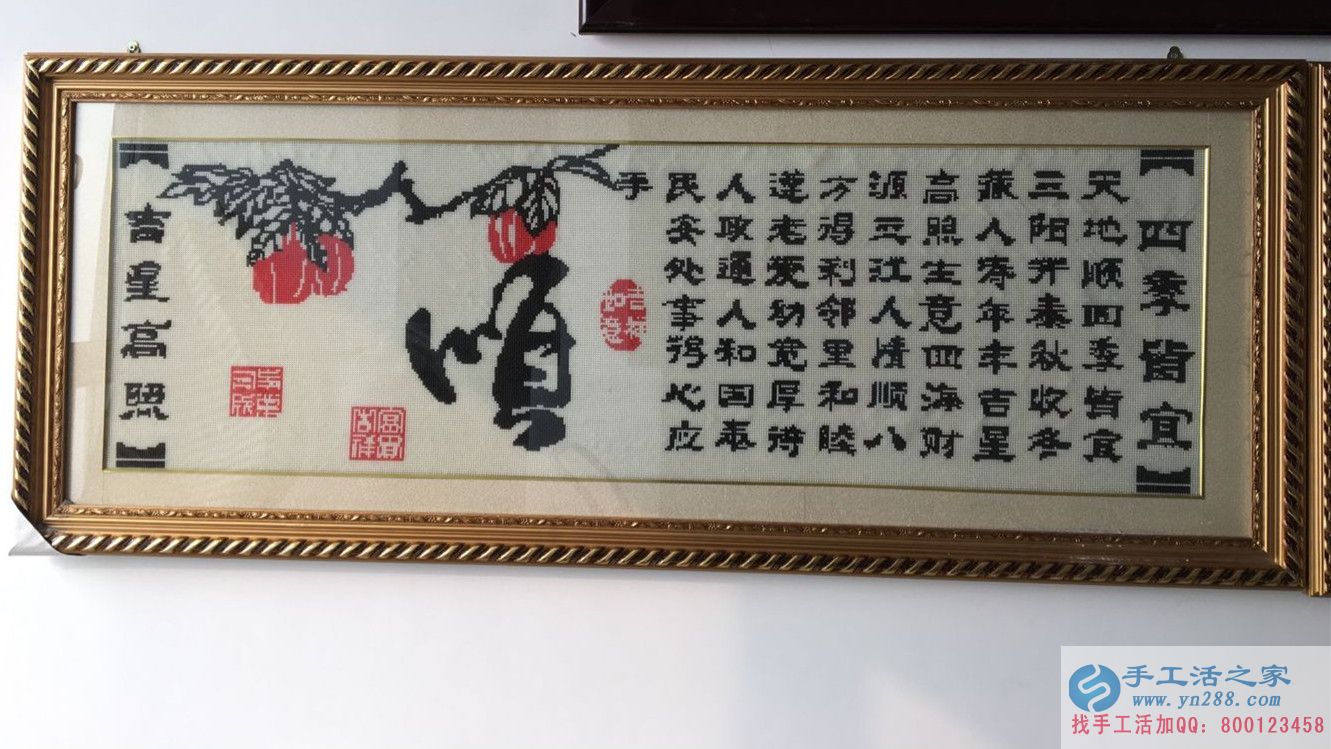 四季皆宜
天地顺四季皆宜
三阳开泰秋收冬
藏人寿年丰吉星
高照生意四海财
源三江人情顺八
方得利邻里和睦
遵老爱幼宽厚待
人政通人和国泰
民安处事得心应
手
吉祥如意
顺
富贵吉祥
吉星高照
手工活之家
www.yn288.com
找手工活加QQ: 800123458